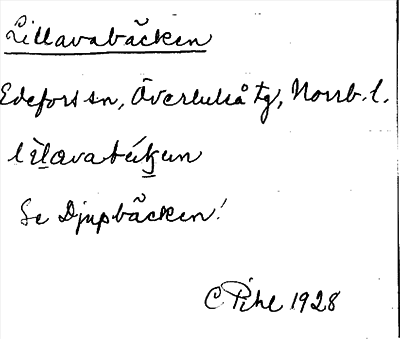 Lillavabäcken
Edefors sn, Överluleå tg, Norrb. l.
Se Djupbäcken!
C Pihl 1928